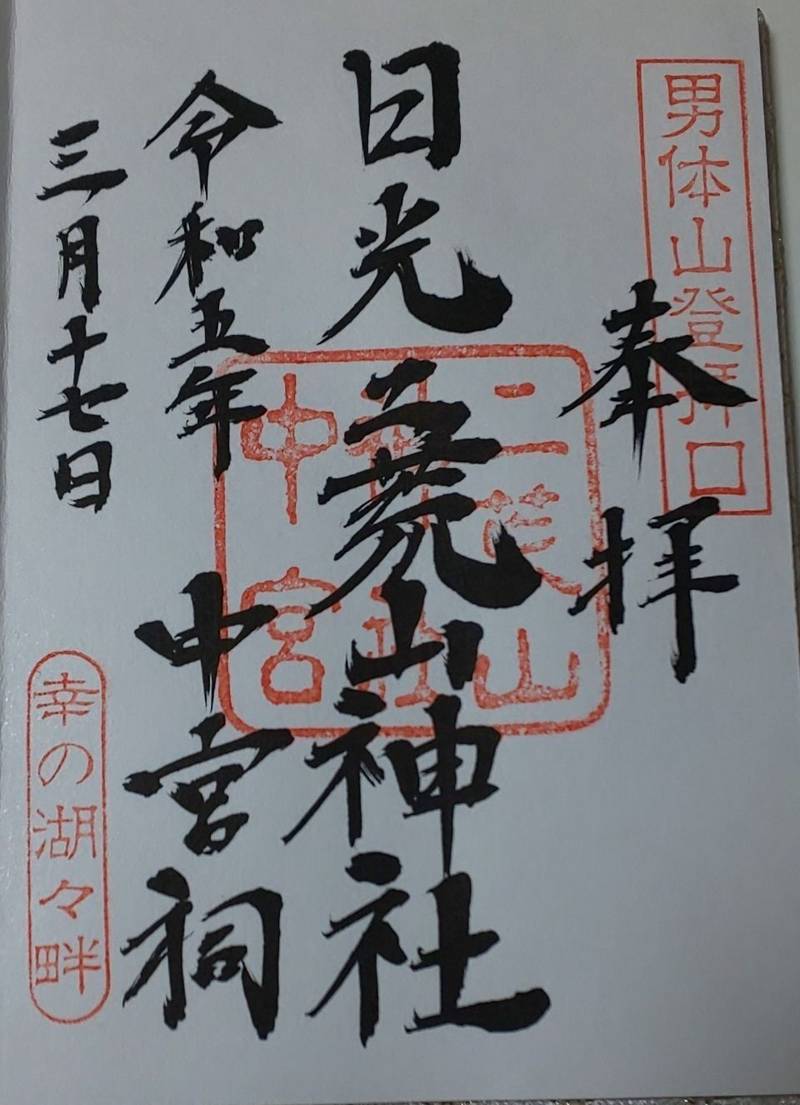 男体山登拝口
奉拝
日光二荒山神社
中宮祠
二荒山
神社
中宮
令和五年
三月十七日
幸の湖々畔